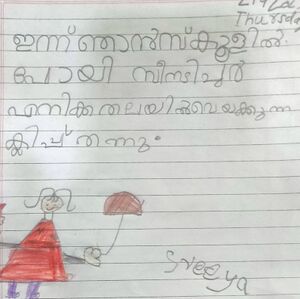 Thursday
ഇന്ന് ഞാൻ സ്കൂളിൽ
പോയി സീനടീച്ചർ
എനിക്ക തലയിൽ വെയക്കുന്ന
ക്ലിപ്പ് തന്നു.
Sreeya